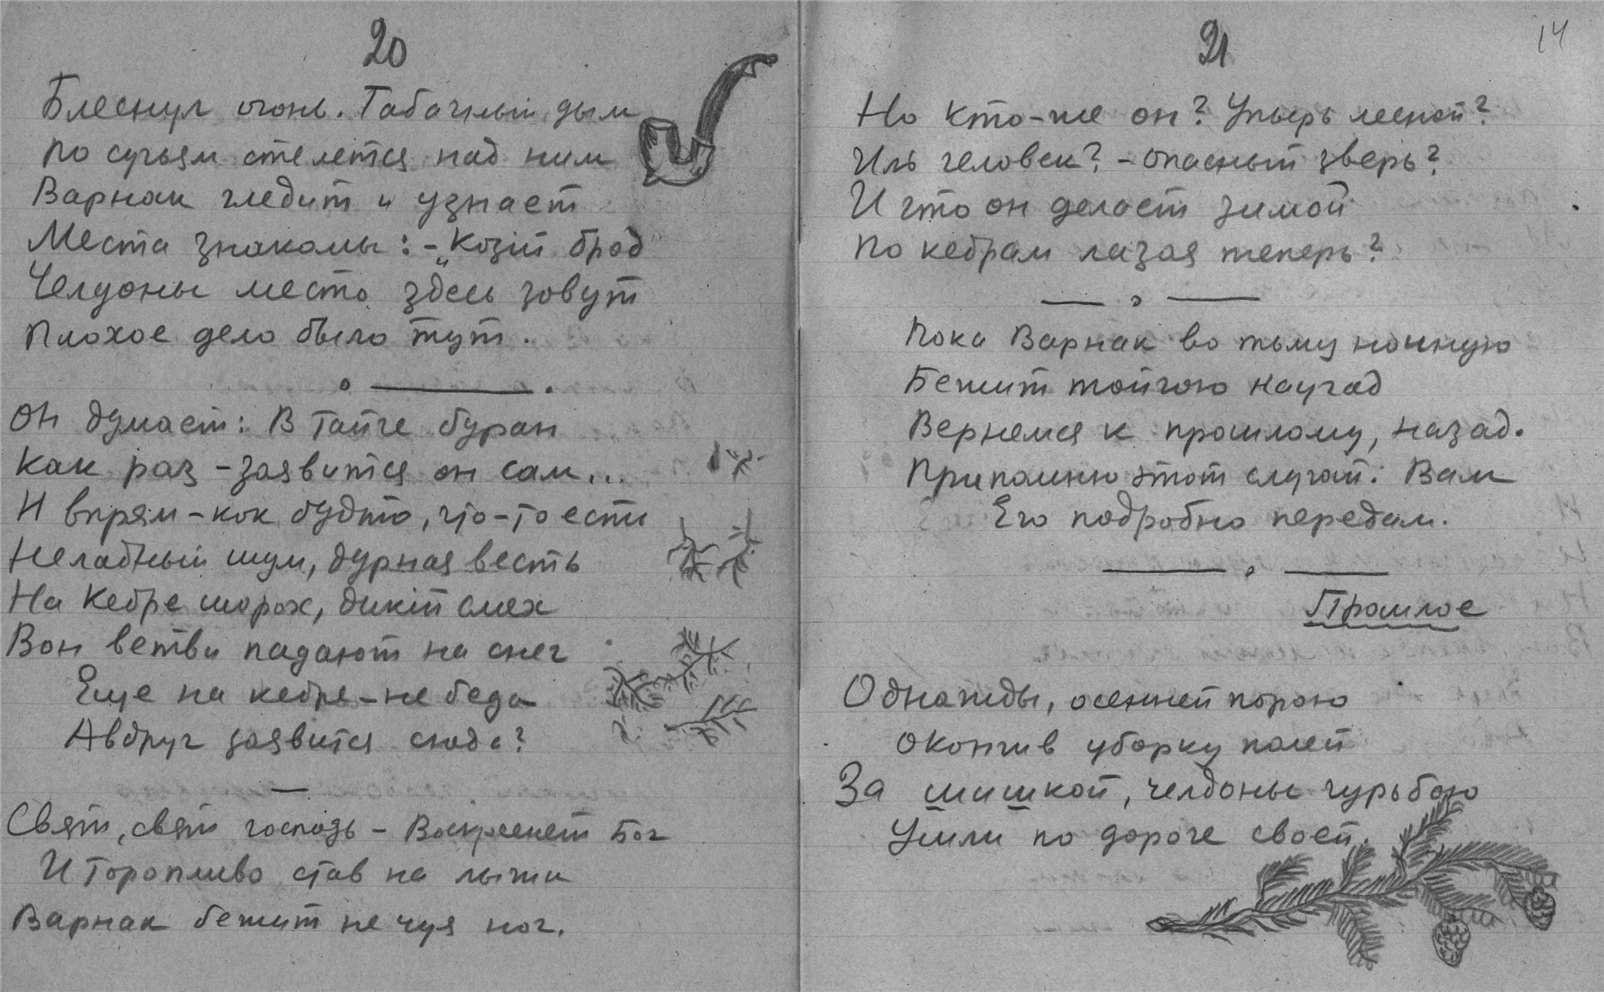 20
Блеснул огонь. Табачный дым
По сучьям стелется над ним
Варнак гледит и узнает
Места знакомы: - "Козий брод"
Челдоны место здесь зовут
Плохое дело было тут.
Он думает: В тайге буран
Как раз - заявится он сам...
И впрям - как будто, что-то есть
Неладный шум, дурная весть
На Кедре шорох, дикий смех
Вон ветви падают на снег
Еще на кедре - не беда
А вдруг заявится сюда?
Свят, свят господь - Воскреснет Бог
И торопливо став на лыжи
Варнак бежит не чуя ног.
21
14
Но кто-же он? Упырь лесной?
Иль человек? - опасный зверь?
И что он делает зимой
По кедрам лазая теперь?
Пока Варнак во тьму ночную
Бежит тайгою наугад
Вернемся к прошлому, назад.
Припомню этот случай: Вам
Его подробно передам.
Прошлое
Однажды, осенней порою
Окончив уборку полей
За шишкой, челдоны гурьбою
Ушли по дороге своей.